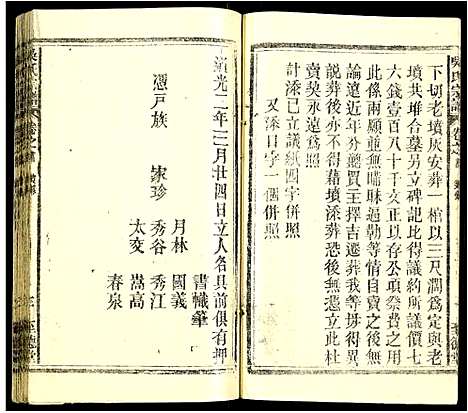 吳氏宗譜
下切老墳灰安葬一棺以三尺濶為定與老
墳共堆合墓另立碑記比議約所議價七
六錢壹百八十千文正以存公項祭費之用
此係兩願並無嗬昧逼勒等情自議之後無
論遠近年分亟買王擇吉遷葬我等毋得異
說葬後亦不得藉墳添葬恐後無憑立此杜
賣契永遠為照
計添已立議紙四字併照
又添日字一個併照
道光二年三月廿四日立人名具前俱有押
憑戶族 家珍 月林 書幟筆
秀谷 國義
太変 秀江
嵩高
春泉
至德堂